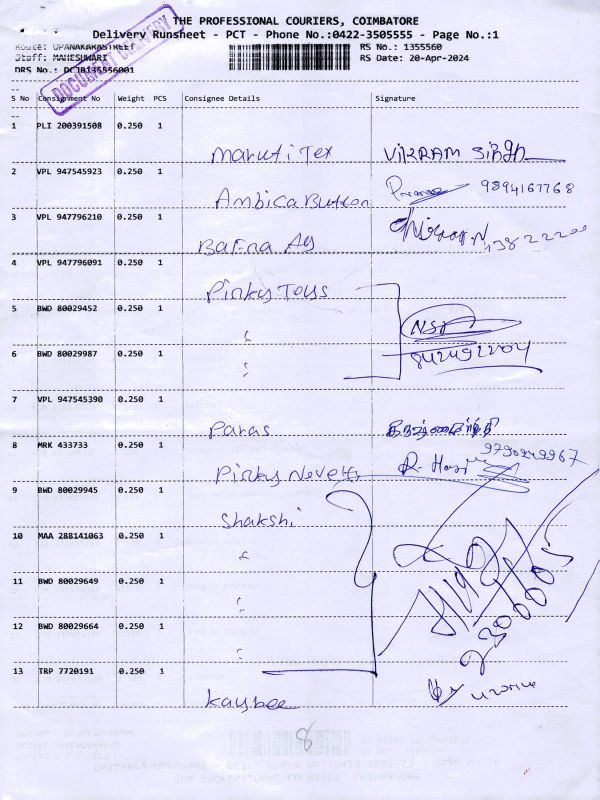 THE PROFESSIONAL COURIERS, COIMBATORE
Delivery Runsheet - PCT - Phone No.:0422-3505555 - Page No.:1
Route: UPANAKARASTREET
RS No.: 1355560
Staff: MAHESHWARI
RS Date: 20-Apr-2024
DRS No.: DCJB135556001
DOCUMENT DELIVERY
S No Consignment No Weight PCS Consignee Details Signature
1 PLI 200391508 0.250 1
Maruti Tex VIKRAM Singh
2 VPL 947545923 0.250 1
Ambica Button 9894167768
3 VPL 947796210 0.250 1
4 VPL 947796091 0.250 1
Pinky Toys
5 BWD 80029452 0.250 1
"
6 BWD 80029987 0.250 1
"
7 VPL 947545390 0.250 1
Paras
8 MRK 433733 0.250 1
9790249967
Pinky R. Hari
9 BWD 80029945 0.250 1
Shakshi
10 MAA 288141063 0.250 1
"
11 BWD 80029649 0.250 1
"
12 BWD 80029664 0.250 1
"
13 TRP 7720191 0.250 1
Kaybee
8